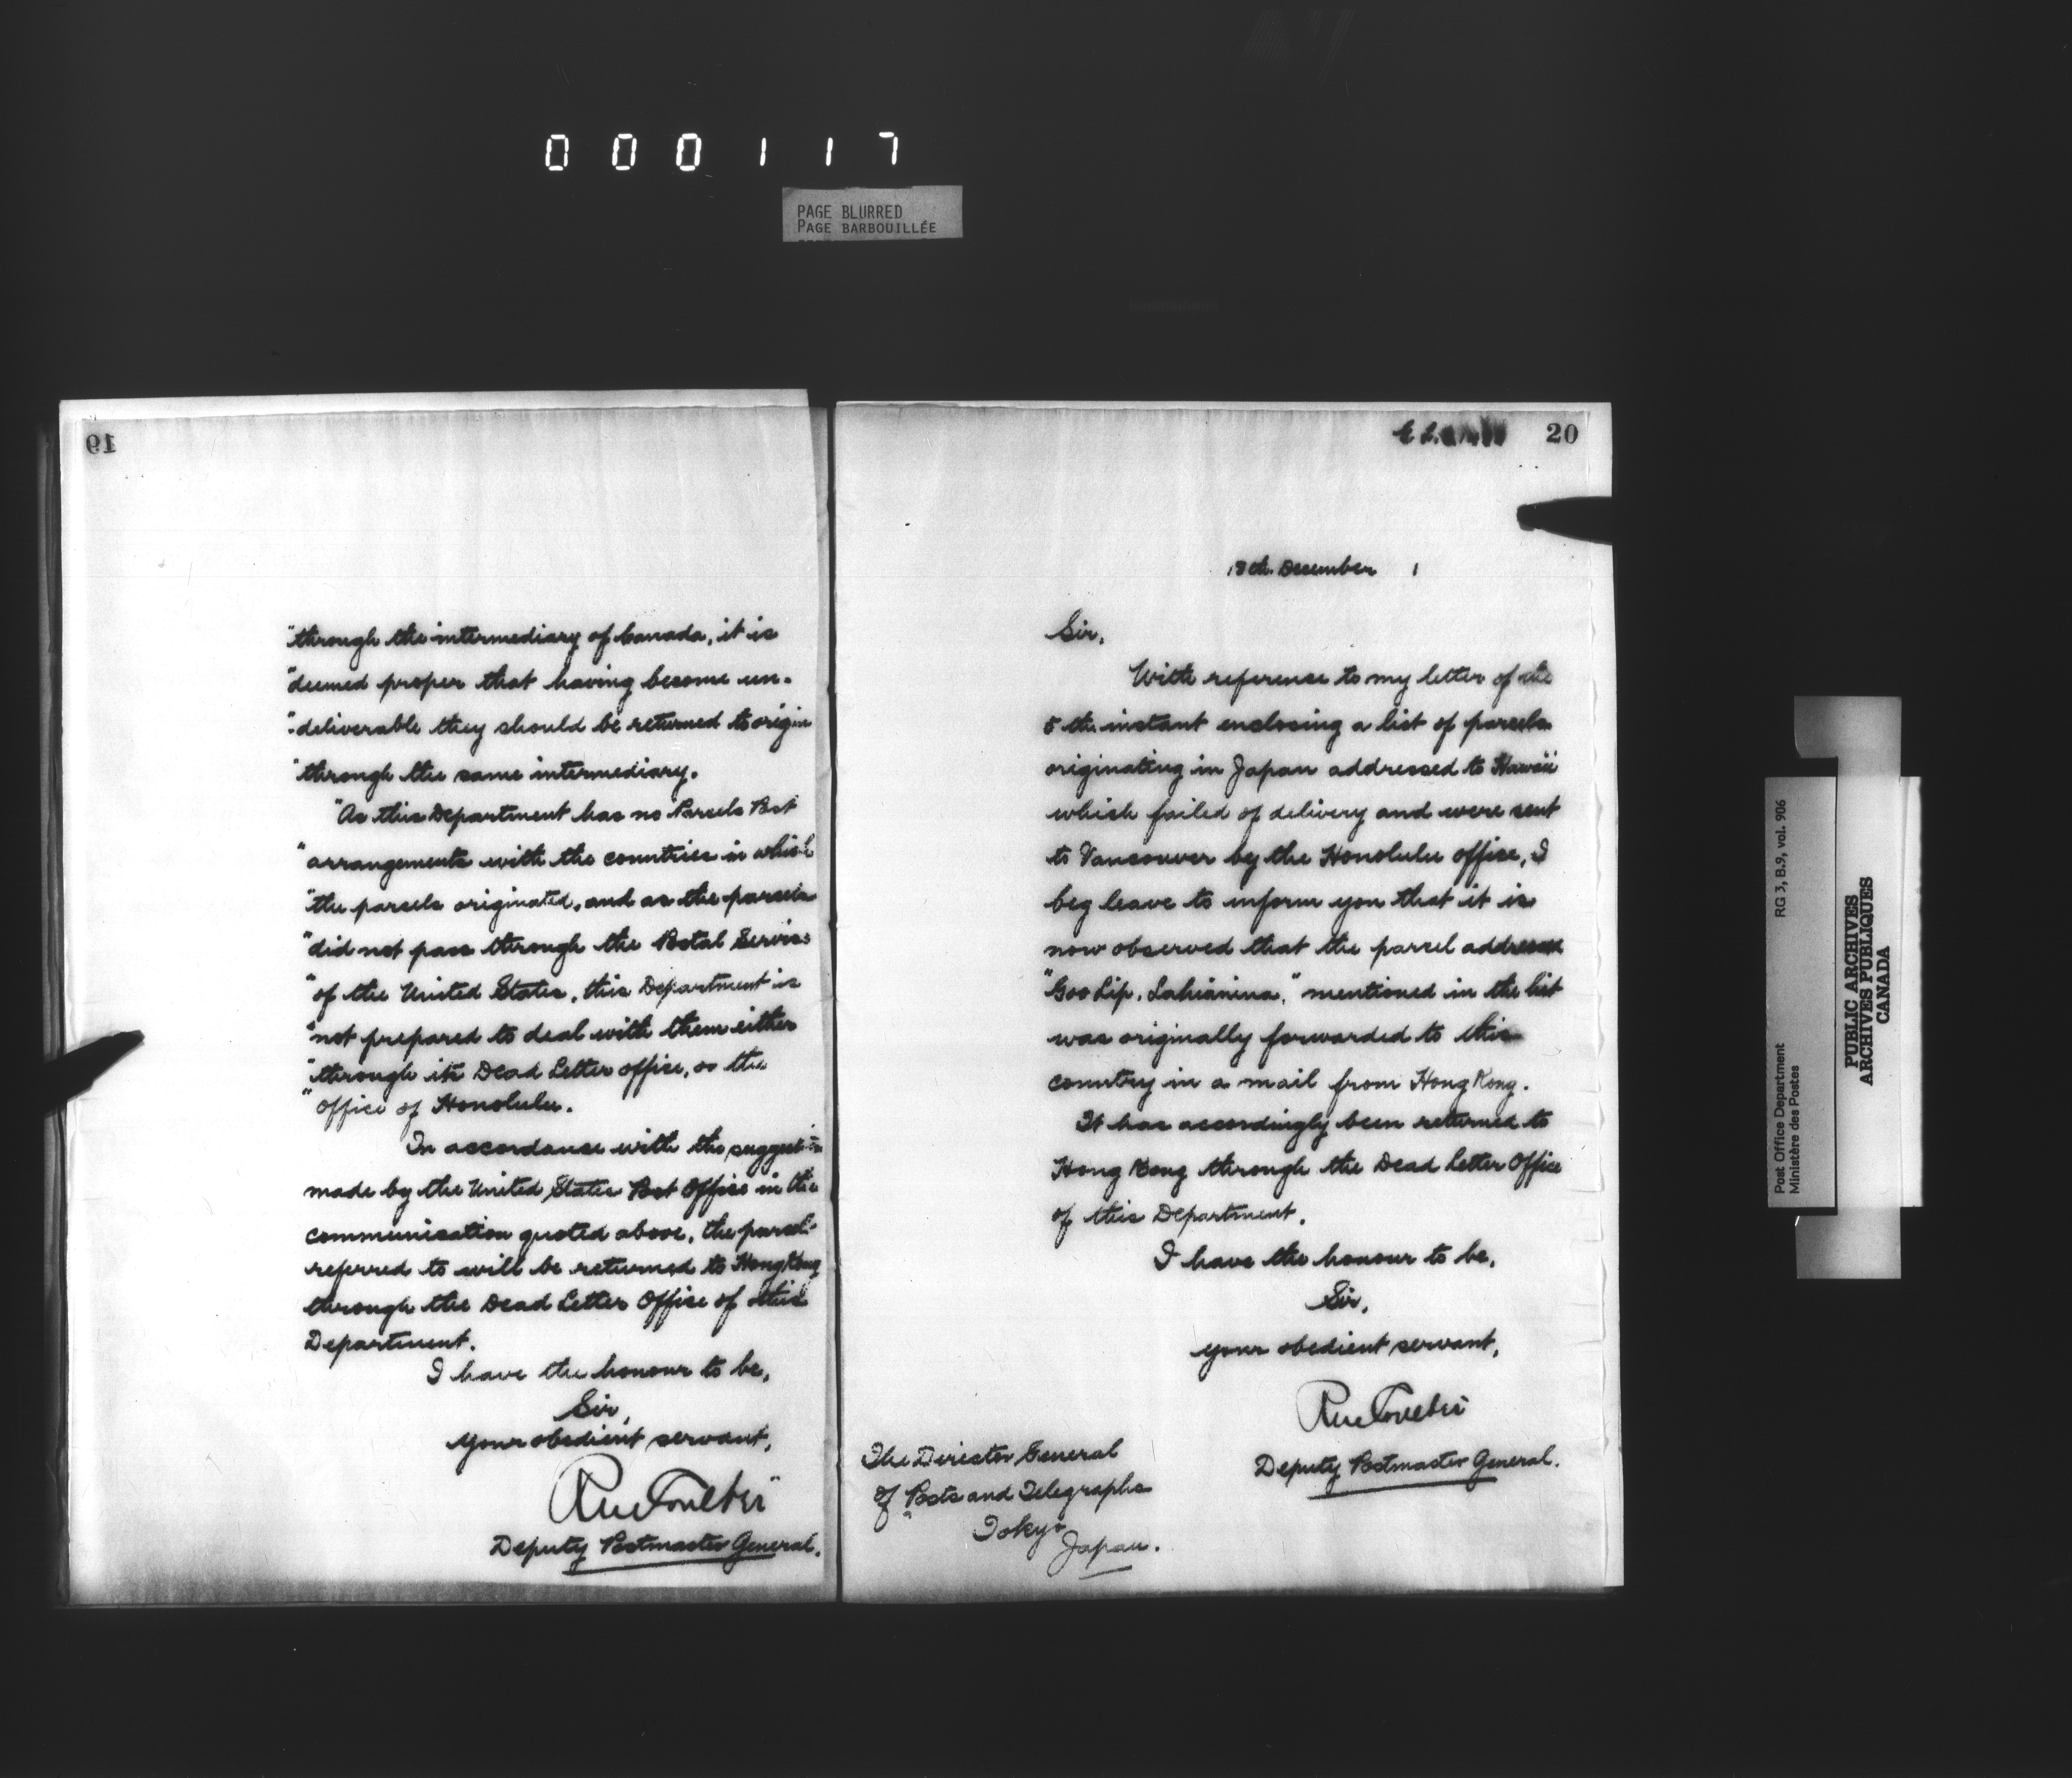 000117
PAGE BLURRED
PAGE BARBOUILLÉE
19
"through the intermediary of Canada, it is
"deemed proper that having become un-
"deliverable they should be returned to origin
"through the same intermediary.
"As this Department has no Parcels Post
"arrangements with the countries in which
"the parcels originated, and as the parcels
"did not pass through the Postal Service
"of the United States, this Department is
"not prepared to deal with them either
"through its Dead Letter office, or the
"office of Honolulu.
In accordance with the suggestion
made by the United States Post Office in the
communication quoted above, the parcels
referred to will be returned to Hong Kong
through the Dead Letter Office of this
Department.
I have the honour to be,
Sir,
Your obedient servant,
Deputy Postmaster General.
20
18th. December 1
Sir,
With reference to my letter of the
5th instant enclosing a list of parcels
originating in Japan addressed to Hawaii
which failed of delivery and were sent
to Vancouver by the Honolulu office, I
beg leave to inform you that it is
now observed that the parcel addressed
"Goo Lip, " mentioned in the list
was originally forwarded to this
country in a mail from Hong Kong.
It has accordingly been returned to
Hong Kong through the Dead Letter Office
of this Department.
I have the honour to be,
Sir,
Your obedient servant,
Deputy Postmaster General.
The Director General
of Posts and Telegraphs
Tokyo
Japan.
Post Office Department
Ministère des Postes
RG 3, B.9, vol. 906
PUBLIC ARCHIVES
ARCHIVES PUBLIQUES
CANADA